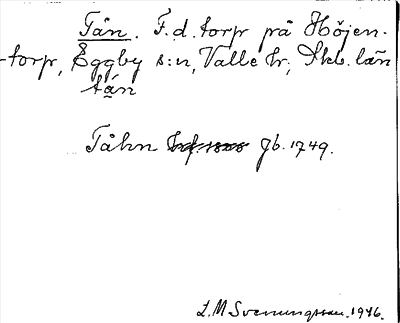 Tån. F.d. torp på Höjen-
torp, Eggby s:n, Valle hr; Skb. län
tán
Tåhn Jb. 1749.
L.M Svenungsson. 1946.